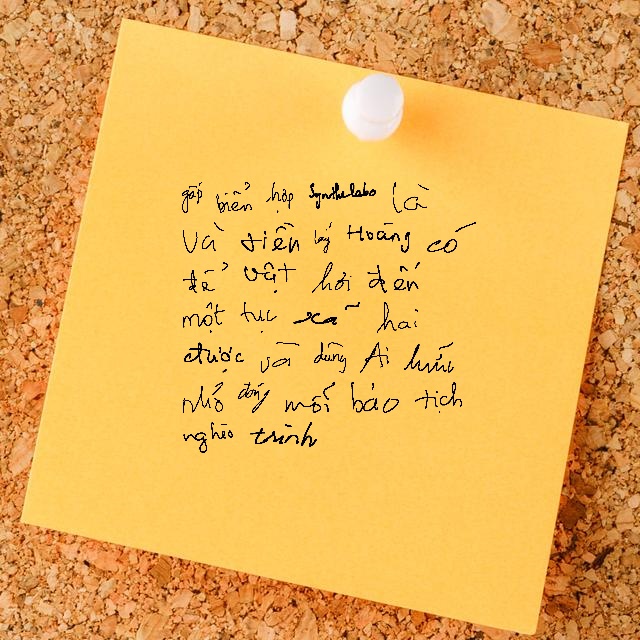 gấp biển hợp Synthelabo là
và tiền bý Hoàng có
để vật hơi đến
một tục xã hai
được với dùng Ai hữu
nhỏ đóng mối bảo tịch
nghèo trình